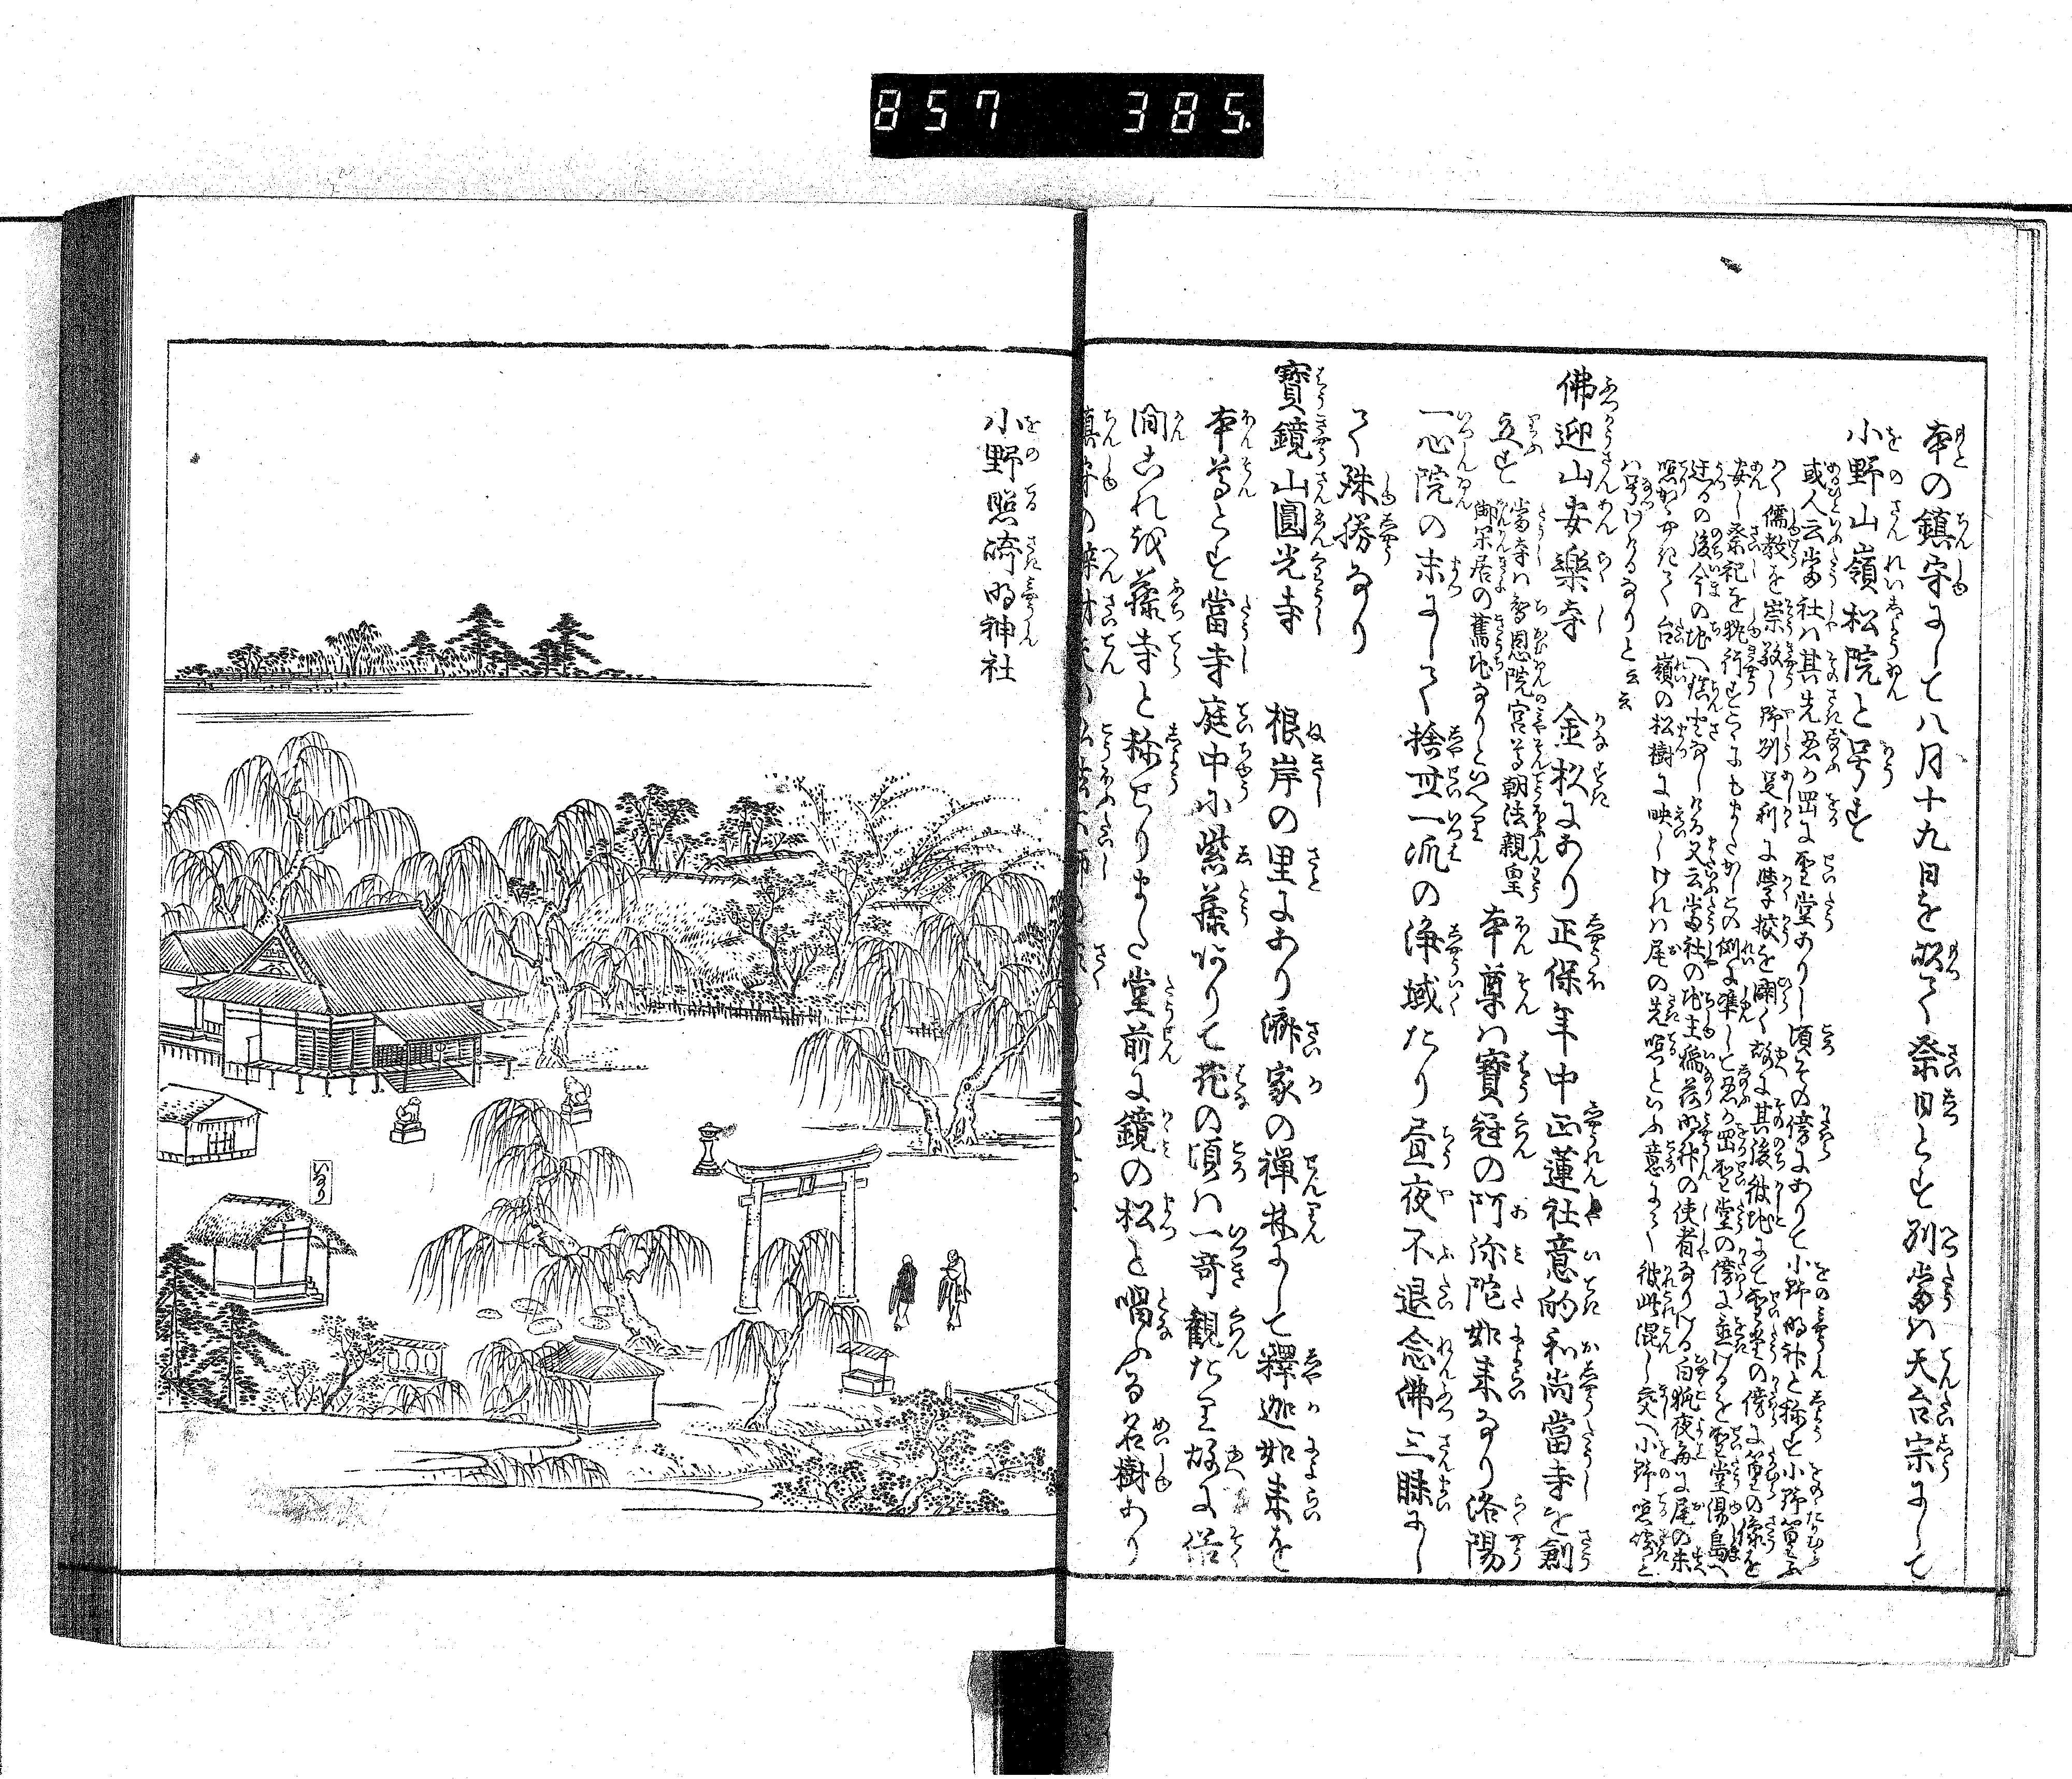 857 385.
本の鎮守にして八月十九日を以て祭日とす別当は天台宗にして
小野山嶺松院と号す
或人云当社は其先忍か岡に聖堂ありし頃その傍にありて小野明神と称す小野篁
儒教を崇敬し野州足利に学校を開く故に其後彼地にて聖堂の傍に篁の像を
安し祭祀を執行す
の例に準して忍か岡聖堂の傍に
聖堂湯島へ
遷るの後今の地へ鎮座なしける又云当社の地主稲荷明神の使者なりける白狐夜毎に尾の末
照かゝやきて台嶺の松樹に映しけれは尾の先照といふ意にて彼此混し交へ小野照崎と
は号けけるなりと云云
佛迎山安樂寺 金杉にあり正保年中正蓮社意的和尚當寺を創
立す 当寺は智恩院宮尊朝法親皇 御閑居の旧地なりといへり 本尊は寶冠の阿弥陀如来なり洛陽
一心院の末にして捨世一派の浄域たり昼夜不退念佛三昧にし
て殊勝なり
寶鏡山圓光寺 根岸の里にあり済家の禅林にして釋迦如来を
本尊とす當寺庭中に紫藤ありて花の頃は一奇観たり故に俗
間これを藤寺と称せりまた堂前に鏡の松と唱ふる名樹あり
小野照崎明神社
いなり